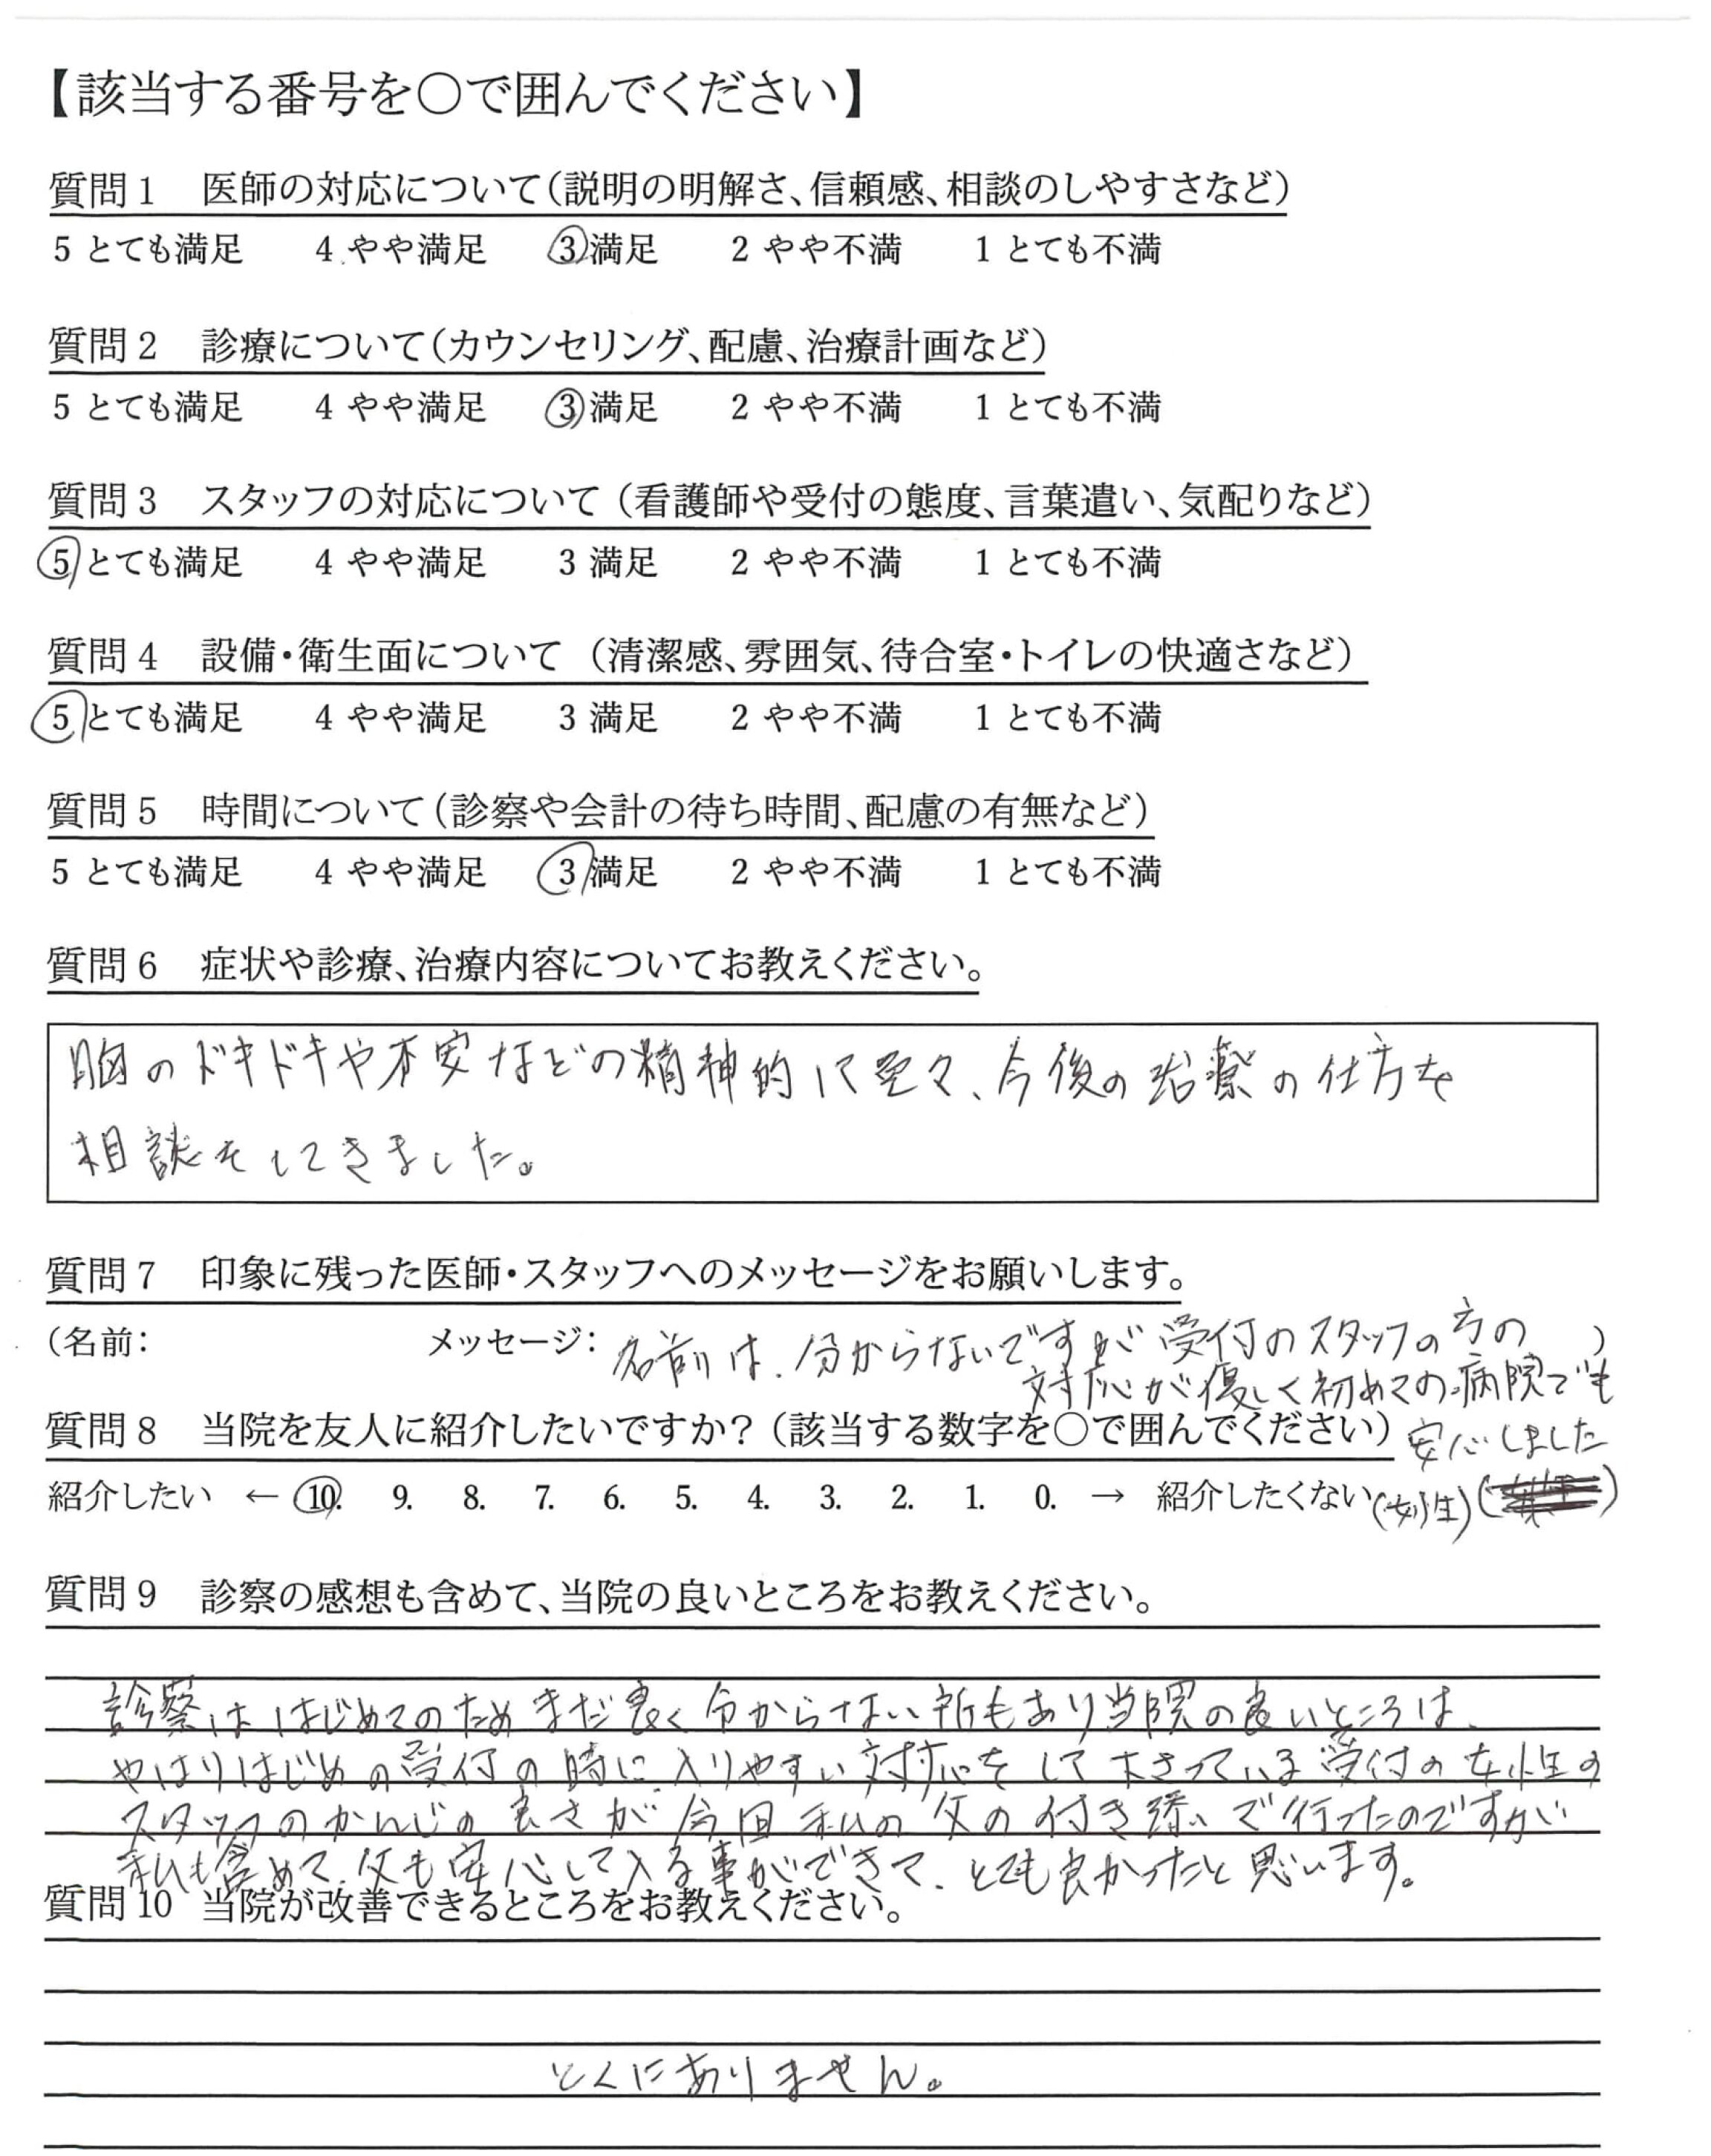 【該当する番号を○で囲んでください】
質問1 医師の対応について(説明の明解さ、信頼感、相談のしやすさなど)
5 とても満足 4 やや満足 3 満足 2 やや不満 1 とても不満
質問2 診療について(カウンセリング、配慮、治療計画など)
5 とても満足 4 やや満足 3 満足 2 やや不満 1 とても不満
質問3 スタッフの対応について(看護師や受付の態度、言葉遣い、気配りなど)
5 とても満足 4 やや満足 3 満足 2 やや不満 1 とても不満
質問4 設備・衛生面について(清潔感、雰囲気、待合室・トイレの快適さなど)
5 とても満足 4 やや満足 3 満足 2 やや不満 1 とても不満
質問5 時間について(診察や会計の待ち時間、配慮の有無など)
5 とても満足 4 やや満足 3 満足 2 やや不満 1 とても不満
質問6 症状や診療、治療内容についてお教えください。
胸のドキドキや不安などの精神的に色々、今後の治療の仕方を
相談をしてきました。
質問7 印象に残った医師・スタッフへのメッセージをお願いします。
(名前: メッセージ: 名前は、分からないですが受付のスタッフの方の )
対応が優しく初めての病院でも
安心しました
(女性)
質問8 当院を友人に紹介したいですか?(該当する数字を○で囲んでください)
紹介したい ← 10. 9. 8. 7. 6. 5. 4. 3. 2. 1. 0. → 紹介したくない
質問9 診察の感想も含めて、当院の良いところをお教えください。
診察ははじめてのためまだ良く分からない所もあり当院の良いところは、
やはりはじめの受付の時に入りやすい対応をして下さっている受付の女性の
スタッフのかんじの良さが今回私の父の付き添いで行ったのですが
私も含めて、父も安心して入る事ができて、とても良かったと思います。
質問10 当院が改善できるところをお教えください。
とくにありません。